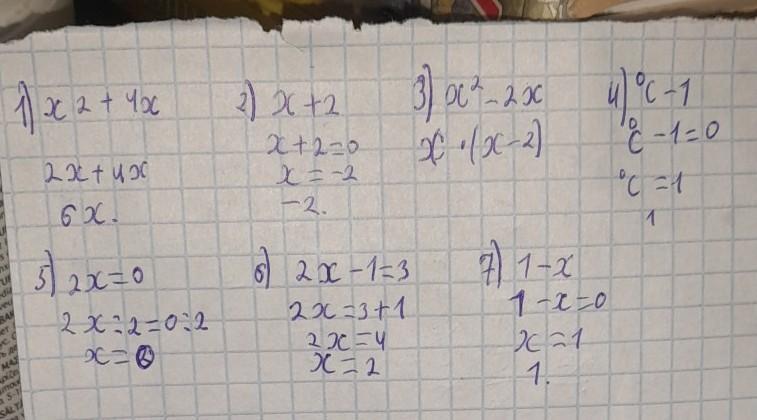 1) x2 + 4x
2x + 4x
6x.
2) x + 2
x + 2 = 0
x = -2
-2.
3) x² - 2x
x · (x - 2)
4) °C - 1
°C - 1 = 0
°C = 1
1
5) 2x = 0
2x : 2 = 0 : 2
x = 0
6) 2x - 1 = 3
2x = 3 + 1
2x = 4
x = 2
7) 1 - x
1 - x = 0
x = 1
1.